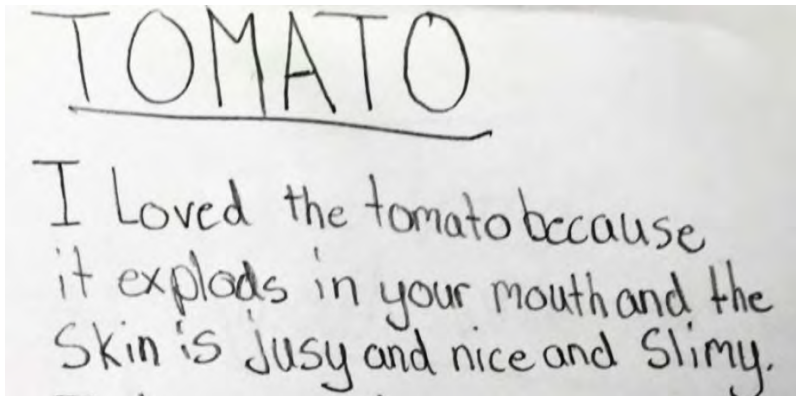 TOMATO
I Loved the tomato because
it explods in your mouth and the
Skin is jusy and nice and Slimy.